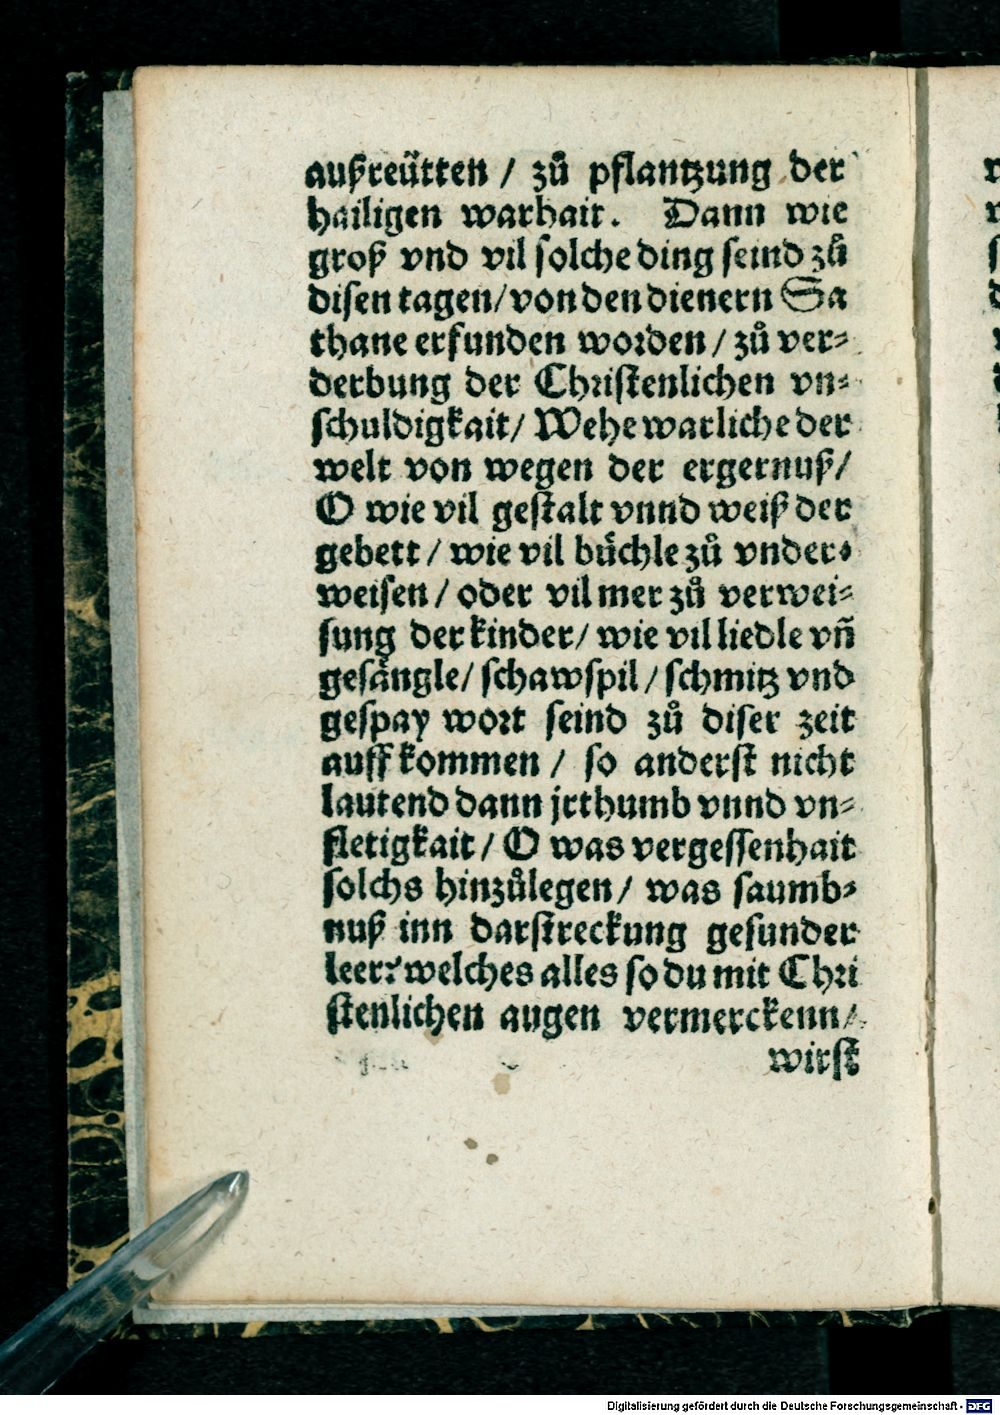 außreütten / zů pflantzung der
hailigen warhait. Dann wie
groß vnd vil solche ding seind zů
disen tagen/ von den dienern Sa
thane erfunden worden / zů ver⸗
derbung der Christenlichen vn⸗
schuldigkait/ Wehe warliche der
welt von wegen der ergernuß/
O wie vil gestalt vnnd weiß der
gebett / wie vil büchle zů vnder⸗
weisen / oder vil mer zů verwei⸗
sung der kinder/ wie vil liedle vñ
gesängle/ schawspil / schmitz vnd
gespay wort seind zů diser zeit
auff kommen / so anderst nicht
lautend dann jrthumb vnnd vn⸗
fletigkait / O was vergessenhait
solchs hinzůlegen / was saumb⸗
nuß inn darstreckung gesunder
leer? welches alles so du mit Chri
stenlichen augen vermerckenn/
wirst
Digitalisierung gefördert durch die Deutsche Forschungsgemeinschaft - DFG